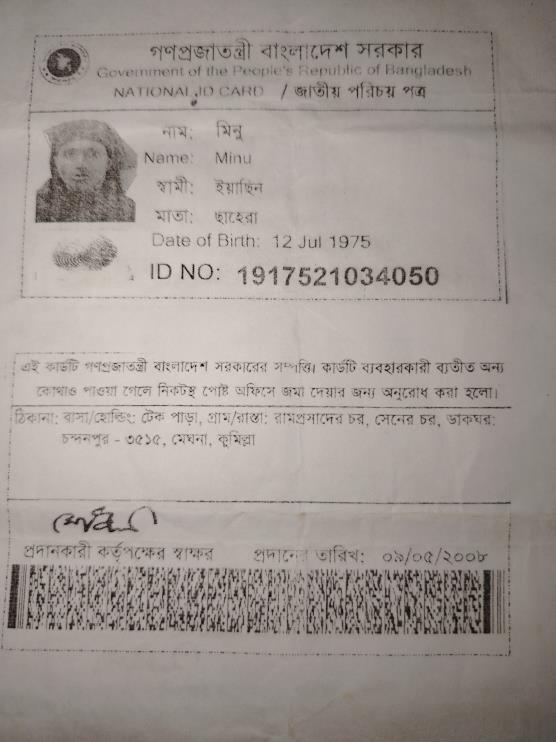 গণপ্রজাতন্ত্রী বাংলাদেশ সরকার
Government of the People's Republic of Bangladesh
NATIONAL ID CARD / জাতীয় পরিচয় পত্র
নাম: মিনু
Name: Minu
স্বামী: ইয়াছিন
মাতা: ছাহেরা
Date of Birth: 12 Jul 1975
ID NO: 1917521034050
এই কার্ডটি গণপ্রজাতন্ত্রী বাংলাদেশ সরকারের সম্পত্তি। কার্ডটি ব্যবহারকারী ব্যতীত অন্য
কোথাও পাওয়া গেলে নিকটস্থ পোষ্ট অফিসে জমা দেয়ার জন্য অনুরোধ করা হলো।
ঠিকানা: বাসা/হোল্ডিং: টেক পাড়া, গ্রাম/রাস্তা: রামপ্রসাদের চর, সেনের চর, ডাকঘর:
চন্দনপুর - ৩৫১৫, মেঘনা, কুমিল্লা
প্রদানকারী কর্তৃপক্ষের স্বাক্ষর প্রদানের তারিখ: ০৯/০৫/২০০৮